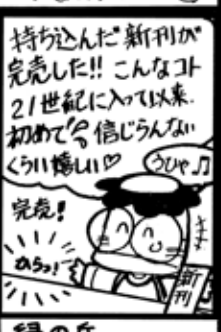 持ち込んだ新刊が
完売した!! こんなコト
21世紀に入って以来、
初めてで信じらんない
くらい嬉しい♡
うひゃ♫
完売!
からっ!
新刊